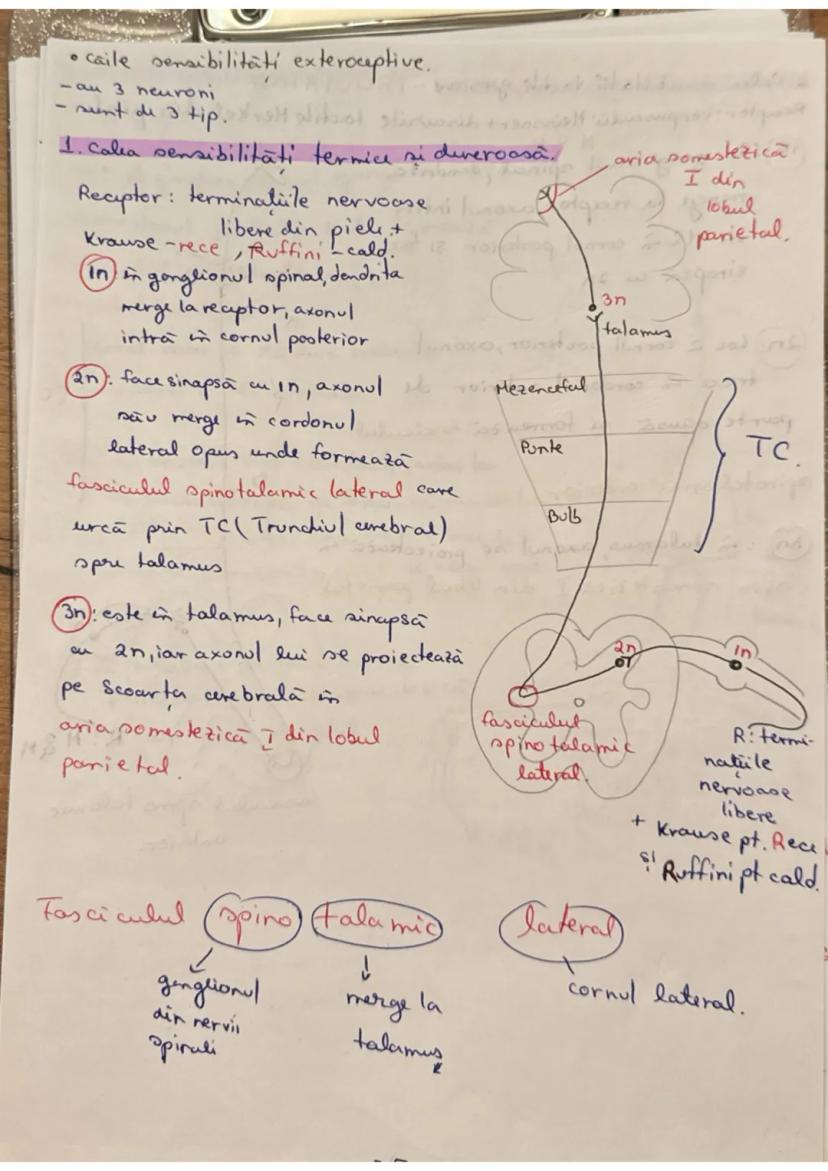 • căile sensibilități exteroceptive.
- au 3 neuroni
- sunt de 3 tip.
1. Calea sensibilități termice și dureroasă.
Receptor: terminațiile nervoase
libere din piele +
Krause - rece, Ruffini - cald.
1n în ganglionul spinal, dendrita
merge la receptor, axonul
intră în cornul posterior
2n: face sinapsă cu 1n, axonul
său merge în cordonul
lateral opus unde formează
fasciculul spinotalamic lateral care
urcă prin TC (Trunchiul cerebral)
spre talamus
3n: este în talamus, face sinapsă
cu 2n, iar axonul lui se proiectează
pe Scoarța cerebrală în
aria somestezică I din lobul
parietal.
aria somestezică
I din
lobul
parietal.
3n
talamus
Mezenceful
Punte
Bulb
TC.
2n
1n
fasciculul
spino talamic
lateral.
R: termi-
națiile
nervoase
libere
+ Krause pt. Rece
și Ruffini pt cald.
Fasciculul spino talamic lateral
ganglionul
din nervii
spinali
merge la
talamus
cornul lateral.